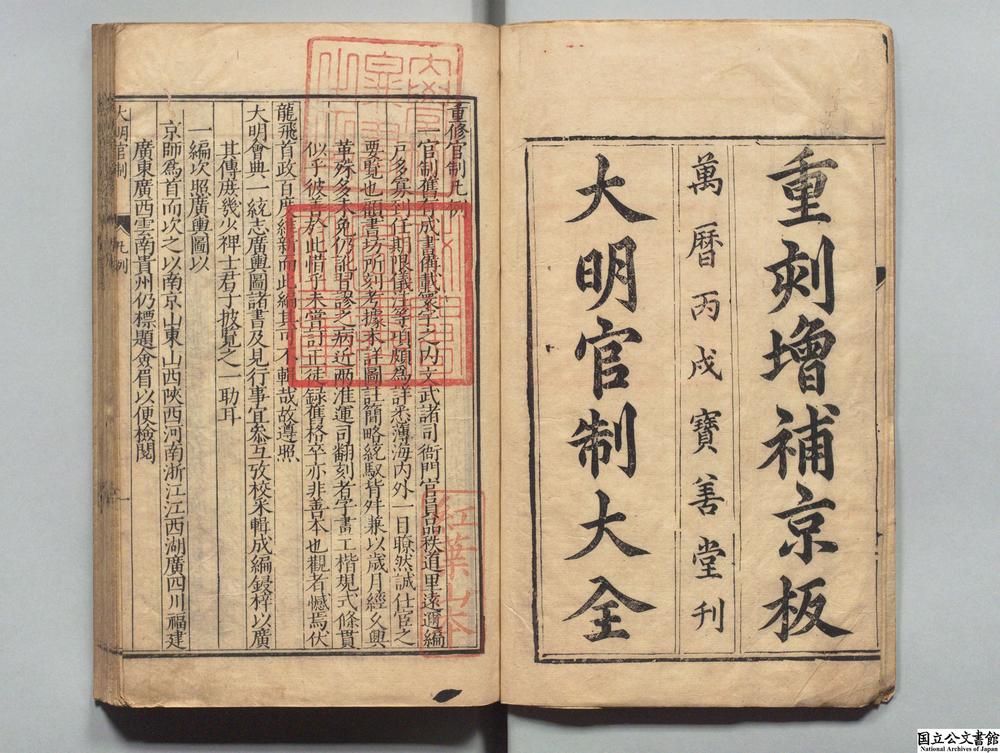 重刻增補京板
萬曆丙戌寶善堂刊
大明官制大全
重修官制凡例
一官制舊有成書備載寰宇之内文武諸司衙門官員品秩道里遠邇編
戶多寡到任期限儀注等項頗為詳悉薄海内外一目瞭然誠仕宦之
要覽也顧書坊所刻考據未詳圖註簡略統馭皆舛兼以歲月經久興
革殊多未免仍訛習謬之病近兩淮運司翻刻者字畫工楷規式條貫
似乎彼善於此惜乎未嘗訂正徒録舊格卒亦非善本也觀者憾焉伏
龍飛首政百度維新而此編其可不輯哉故遵照
大明會典一統志廣輿圖諸書及見行事宜叅互攷校采輯成編鋟梓以廣
其傳庶幾少裨士君子披覽之一助耳
一編次照廣輿圖以
京師為首而次之以南京山東山西陜西河南浙江江西湖廣四川福建
廣東廣西雲南貴州仍標題僉眉以便檢閱
大明官制 凡例 一
紅葉山本
国立公文書館
National Archives of Japan